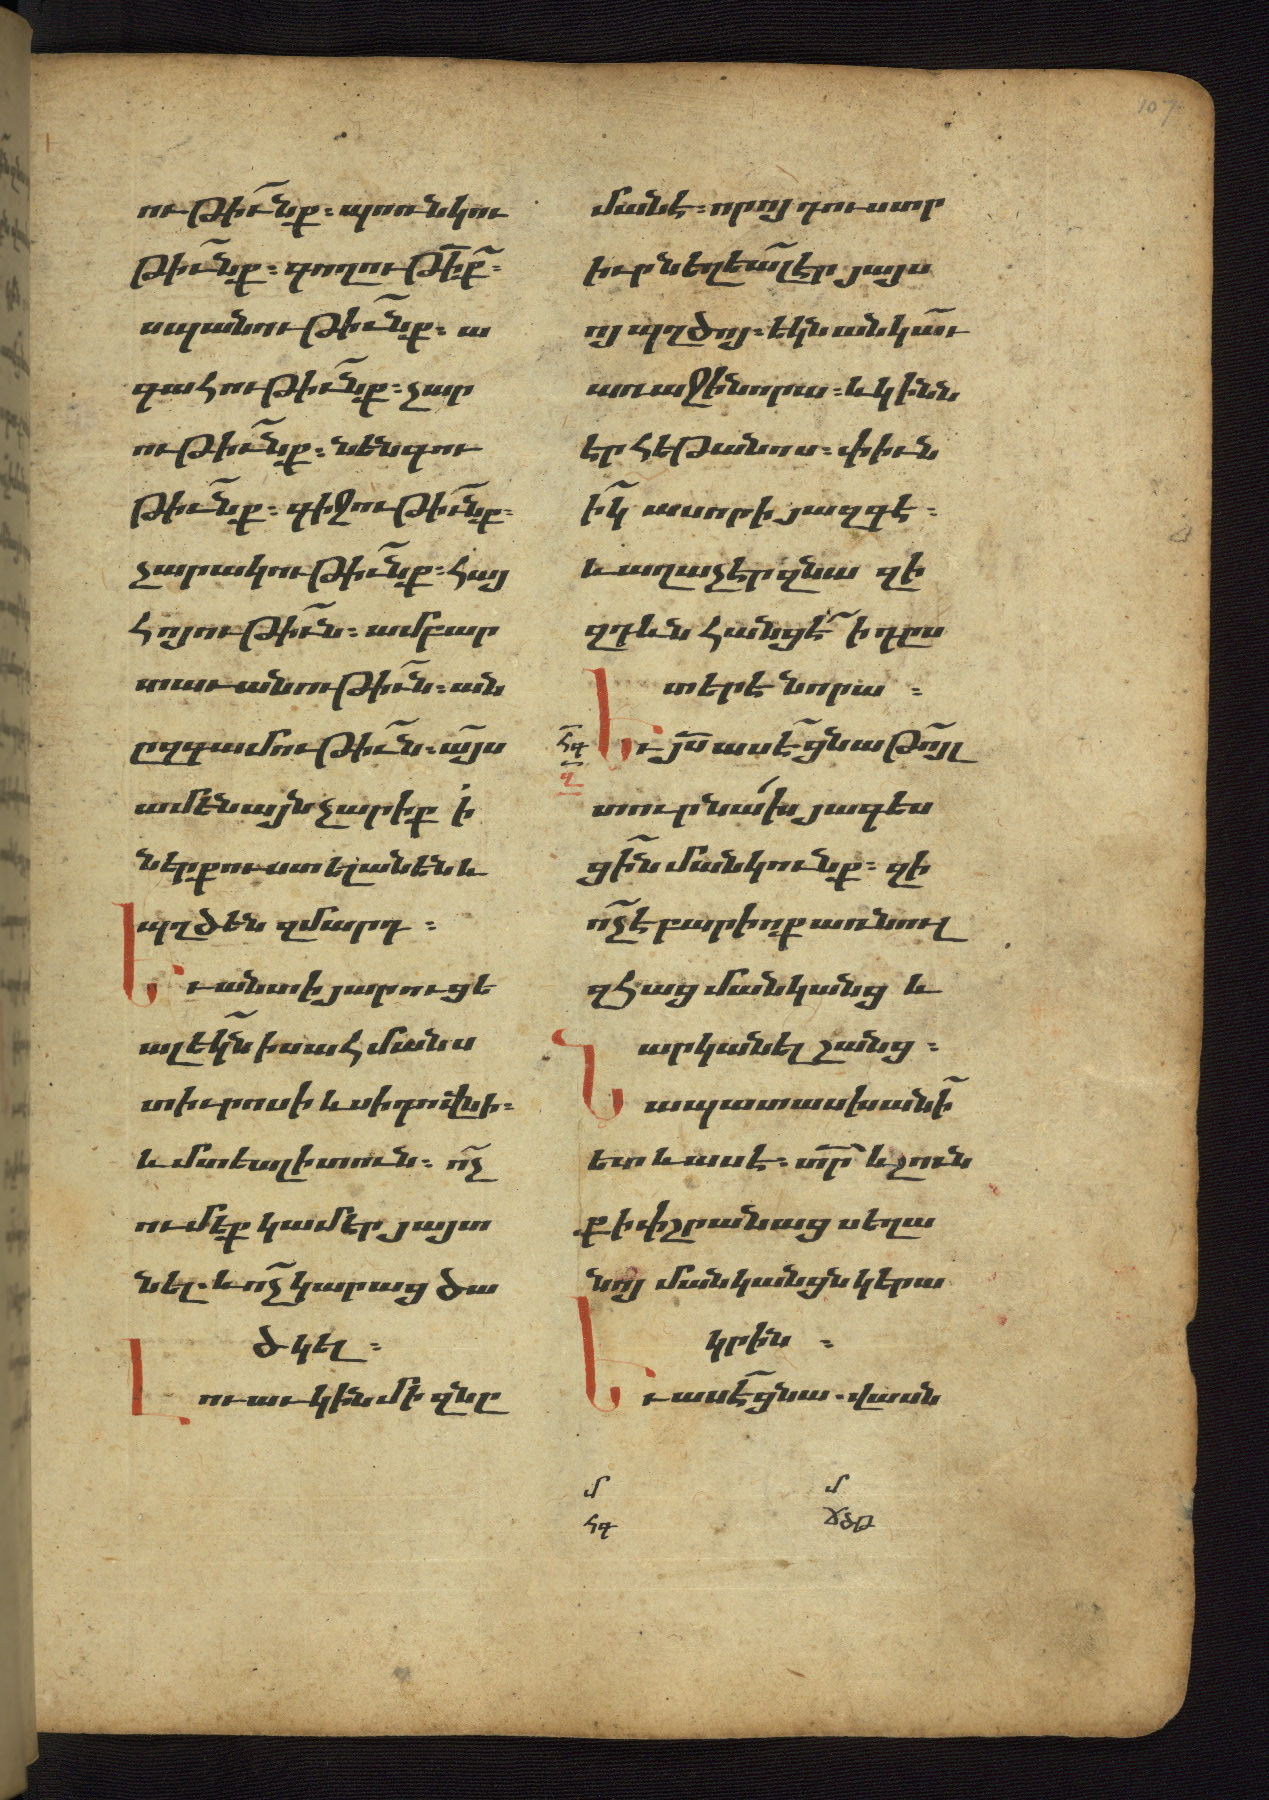 107
ութի՜ւնք. պոռնկու
թի՜ւնք. գողութի՜ք.
սպանութի՜ւնք. ա
գահութի՜ւնք. չար
ութի՜ւնք. նենգու
թի՜ւնք. գիջութի՜ւնք.
չարակութի՜ւնք. հայ
հոյութի՜ւն. ամբար
տաւանութի՜ւն. ան
ըզգամութի՜ւն. ա՜յս
ամենայն չարիք ի
ներքուստ ելանեն և
պղծեն զմարդ.
Եւ անտի յարուցե
ալ եկ՜ն ի սահմանս
տիւրոսի և սիդովնի.
և մտեալ ի տուն. ո՜չ
ումեք կամէր յայտ
նել. և ո՜չ կարաց ծա
ծկել.
Լուաւ կին մի զնը
մանէ. որոյ դուստր
իւր նեղեա՜լ էր յայս
ոյ պղծոյ. եկն անկա՜ւ
առաջի նորա. և կինն
էր հեթանոս. փիւն
ի՜կ ասորի յազգէ.
և աղաչէր զնա զի
զդևն հանցէ՜ ի դըս
տերէ նորա.
Եւ յ՜ս ասէ՜ ցնա թո՜յլ
հգ
զ
տուր նախ յագես
ցի՜ն մանկունք. զի
ո՜չ է բարիոք առնուլ
զհաց մանկանց և
արկանել շանց.
Նա պատասխանի՜
ետ և ասէ. տ՜ր և շուն
ք ի փշրանաց սեղա
նոյ մանկանցն կերա
կրին.
Եւ ասէ՜ ցնա. վասն
մ
հգ
մ
ճծթ